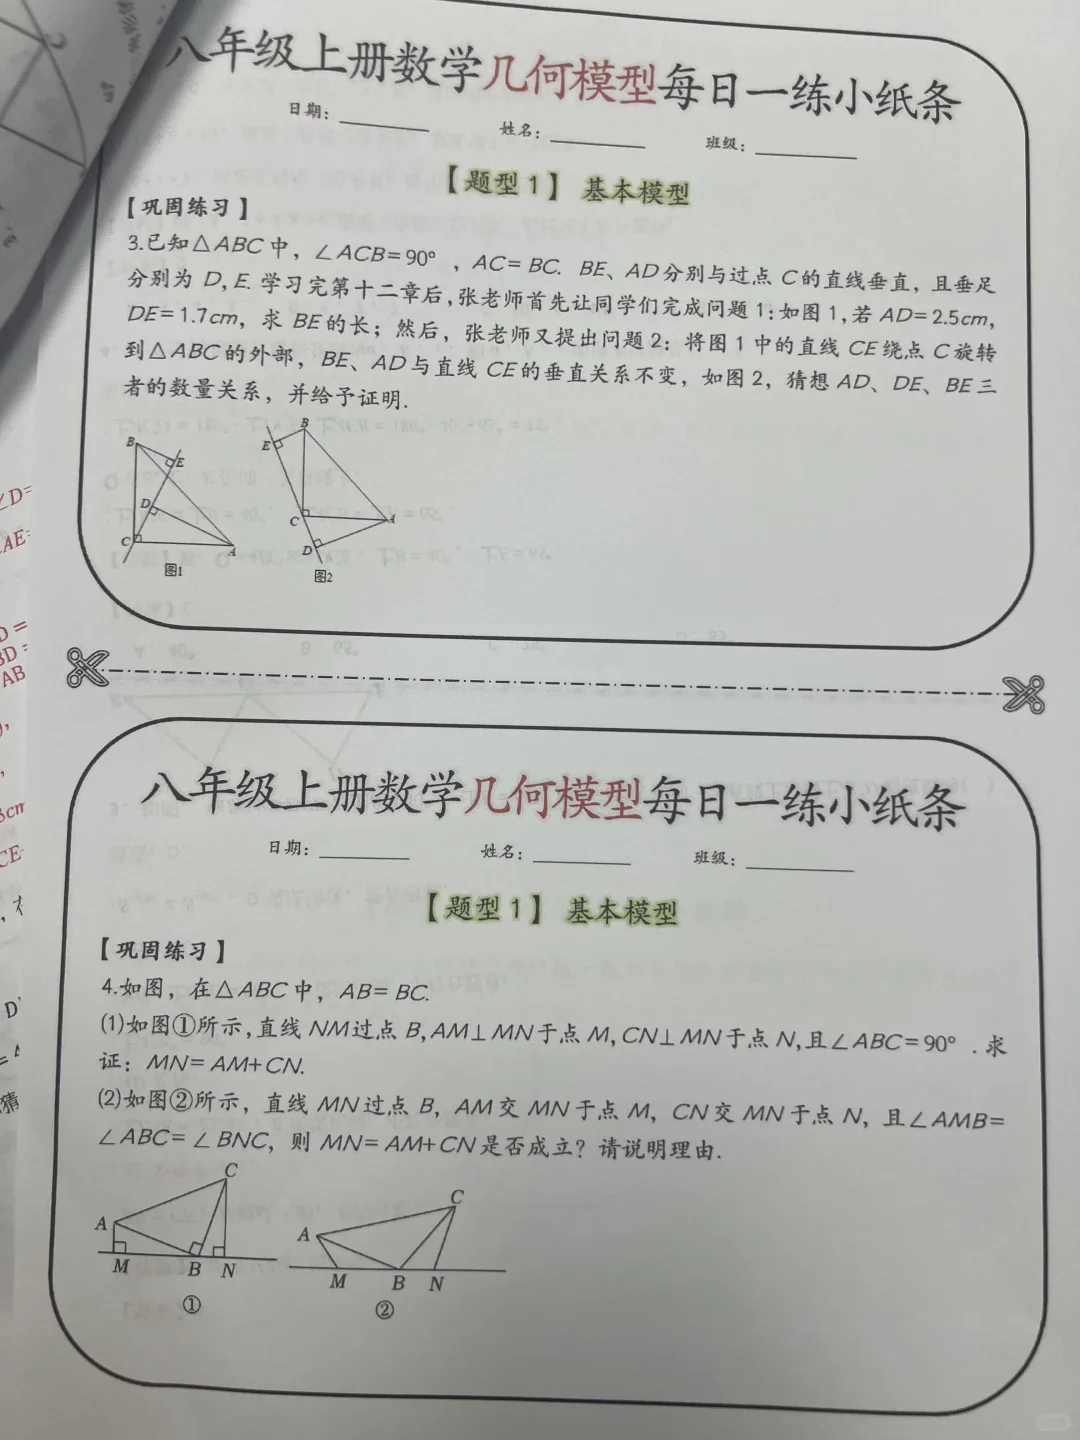 八年级上册数学几何模型每日一练小纸条
日期: 姓名: 班级:
【题型1】 基本模型
【巩固练习】
3.已知△ABC中，∠ACB=90° ，AC=BC. BE、AD分别与过点C的直线垂直，且垂足
分别为 D,E. 学习完第十二章后,张老师首先让同学们完成问题1:如图1,若 AD=2.5cm,
DE=1.7cm，求 BE的长；然后，张老师又提出问题2：将图1中的直线CE绕点C旋转
到△ABC的外部，BE、AD与直线 CE的垂直关系不变，如图2，猜想AD、DE、BE三
者的数量关系，并给予证明.
B E D C A
图1
E B C A D
图2
八年级上册数学几何模型每日一练小纸条
日期: 姓名: 班级:
【题型1】 基本模型
【巩固练习】
4.如图，在△ABC中，AB=BC.
(1)如图①所示,直线NM过点B,AM⊥MN于点M,CN⊥MN于点N,且∠ABC=90° .求
证：MN=AM+CN.
(2)如图②所示，直线 MN过点 B，AM交 MN于点 M，CN交 MN于点 N，且∠AMB=
∠ABC=∠BNC，则 MN=AM+CN是否成立？请说明理由.
C A M B N
①
C A M B N
②